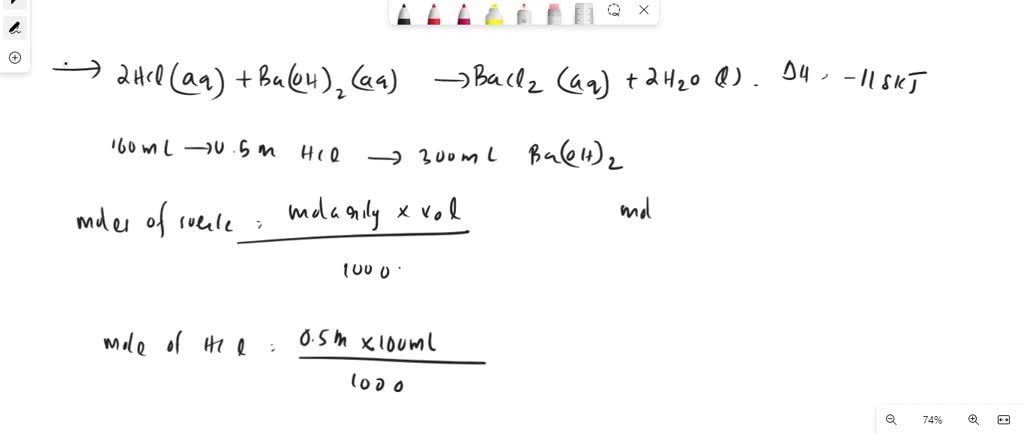 → 2HCl(aq) + Ba(OH)2(aq) → BaCl2 (aq) + 2H2O (l). ΔH , -118KJ
100mL → 0.5m HCl → 300mL Ba(OH)2
moles of = molarity x vol
mol
1000
mole of HCl : 0.5m x 100mL
1000
74%